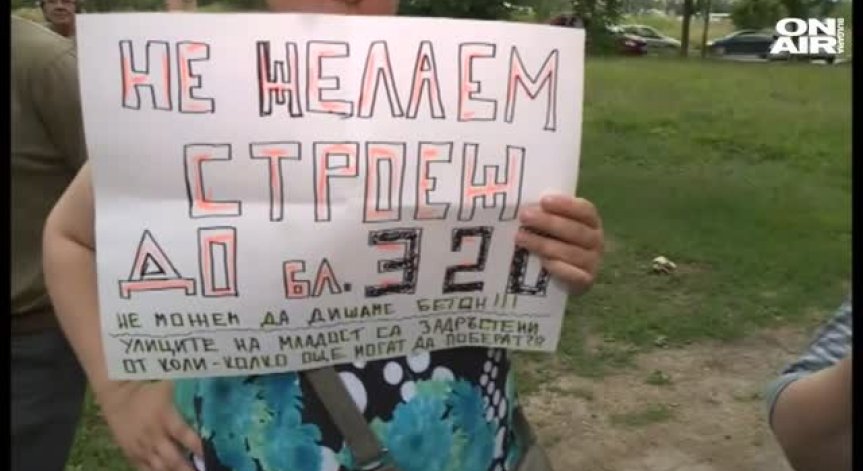 НЕ ЖЕЛАЕМ
СТРОЕЖ
ДО бл. 320
НЕ МОЖЕМ ДА ДИШАМЕ БЕТОН!!!
УЛИЦИТЕ НА МЛАДОСТ СА ЗАДРЪСТЕНИ
ОТ КОЛИ-КОЛКО ОЩЕ МОГАТ ДА ПОБЕРАТ?!?
ON
AIR
BULGARIA